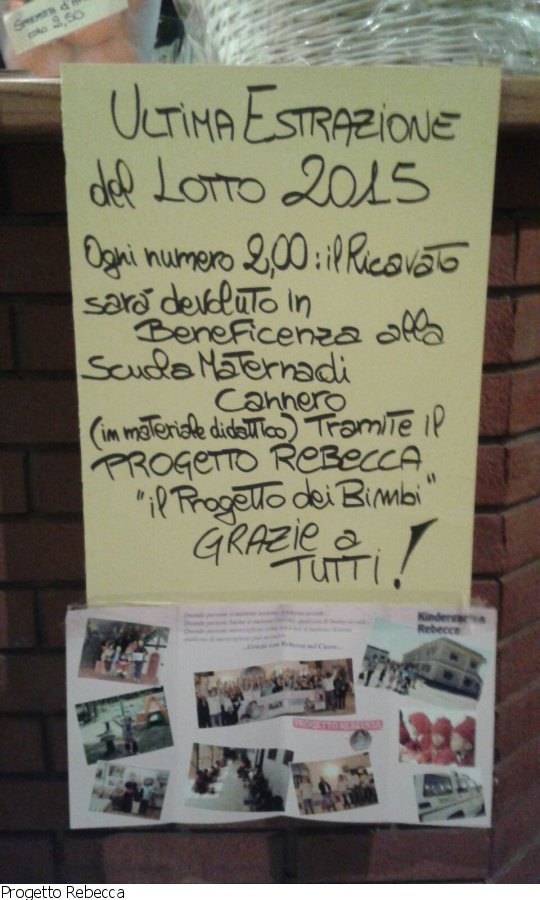 euro 2,50
ULTIMA ESTRAZIONE
del LOTTO 2015
Ogni numero 2,00: il Ricavato
sarà devoluto in
Beneficenza alla
Scuola Materna di
Cannero
(im materiale didattico) Tramite il
PROGETTO REBECCA
"il Progetto dei Bimbi"
GRAZIE a
TUTTI!
Kindergarten
Rebecca
...Grazie con Rebecca nel Cuore...
PROGETTO REBECCA
Progetto Rebecca